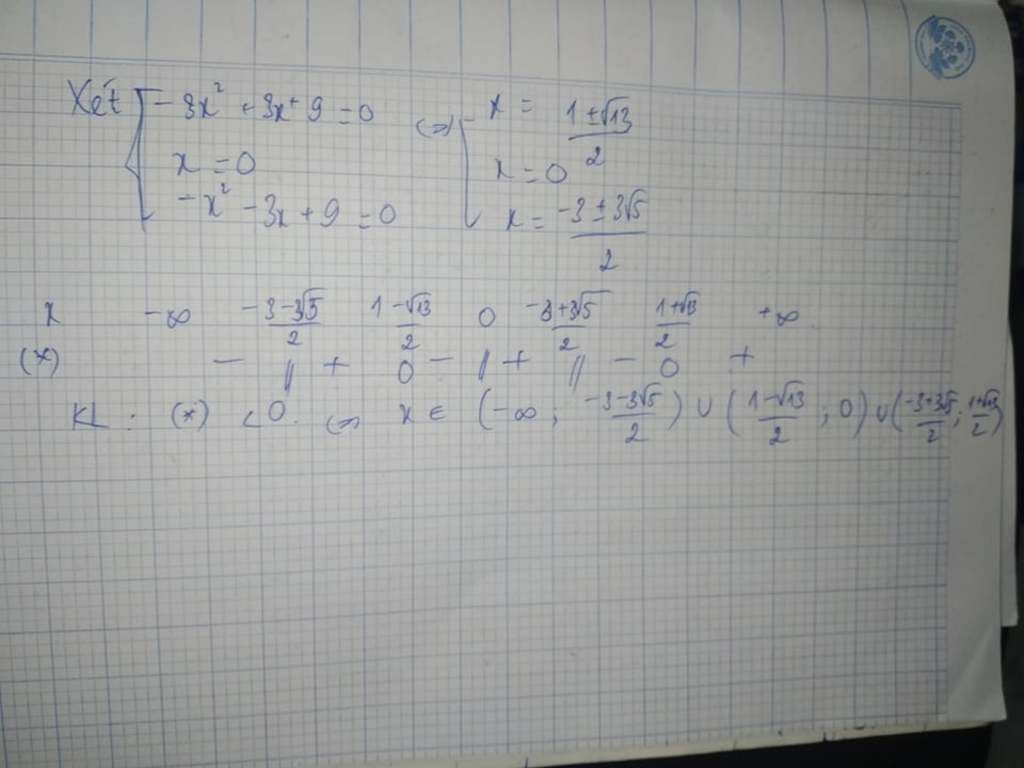 Xét { -3x² + 3x + 9 = 0 (=) [ x = (1 ± √13)/2
x = 0 x = 0
-x² - 3x + 9 = 0 x = (-3 ± 3√5)/2
x -∞ (-3-3√5)/2 (1-√13)/2 0 (-3+3√5)/2 (1+√13)/2 +∞
(*) - || + 0 - || + || - 0 +
KL : (*) < 0. (=) x ∈ (-∞ ; (-3-3√5)/2) ∪ ((1-√13)/2 ; 0) ∪ ((-3+3√5)/2 ; (1+√13)/2)